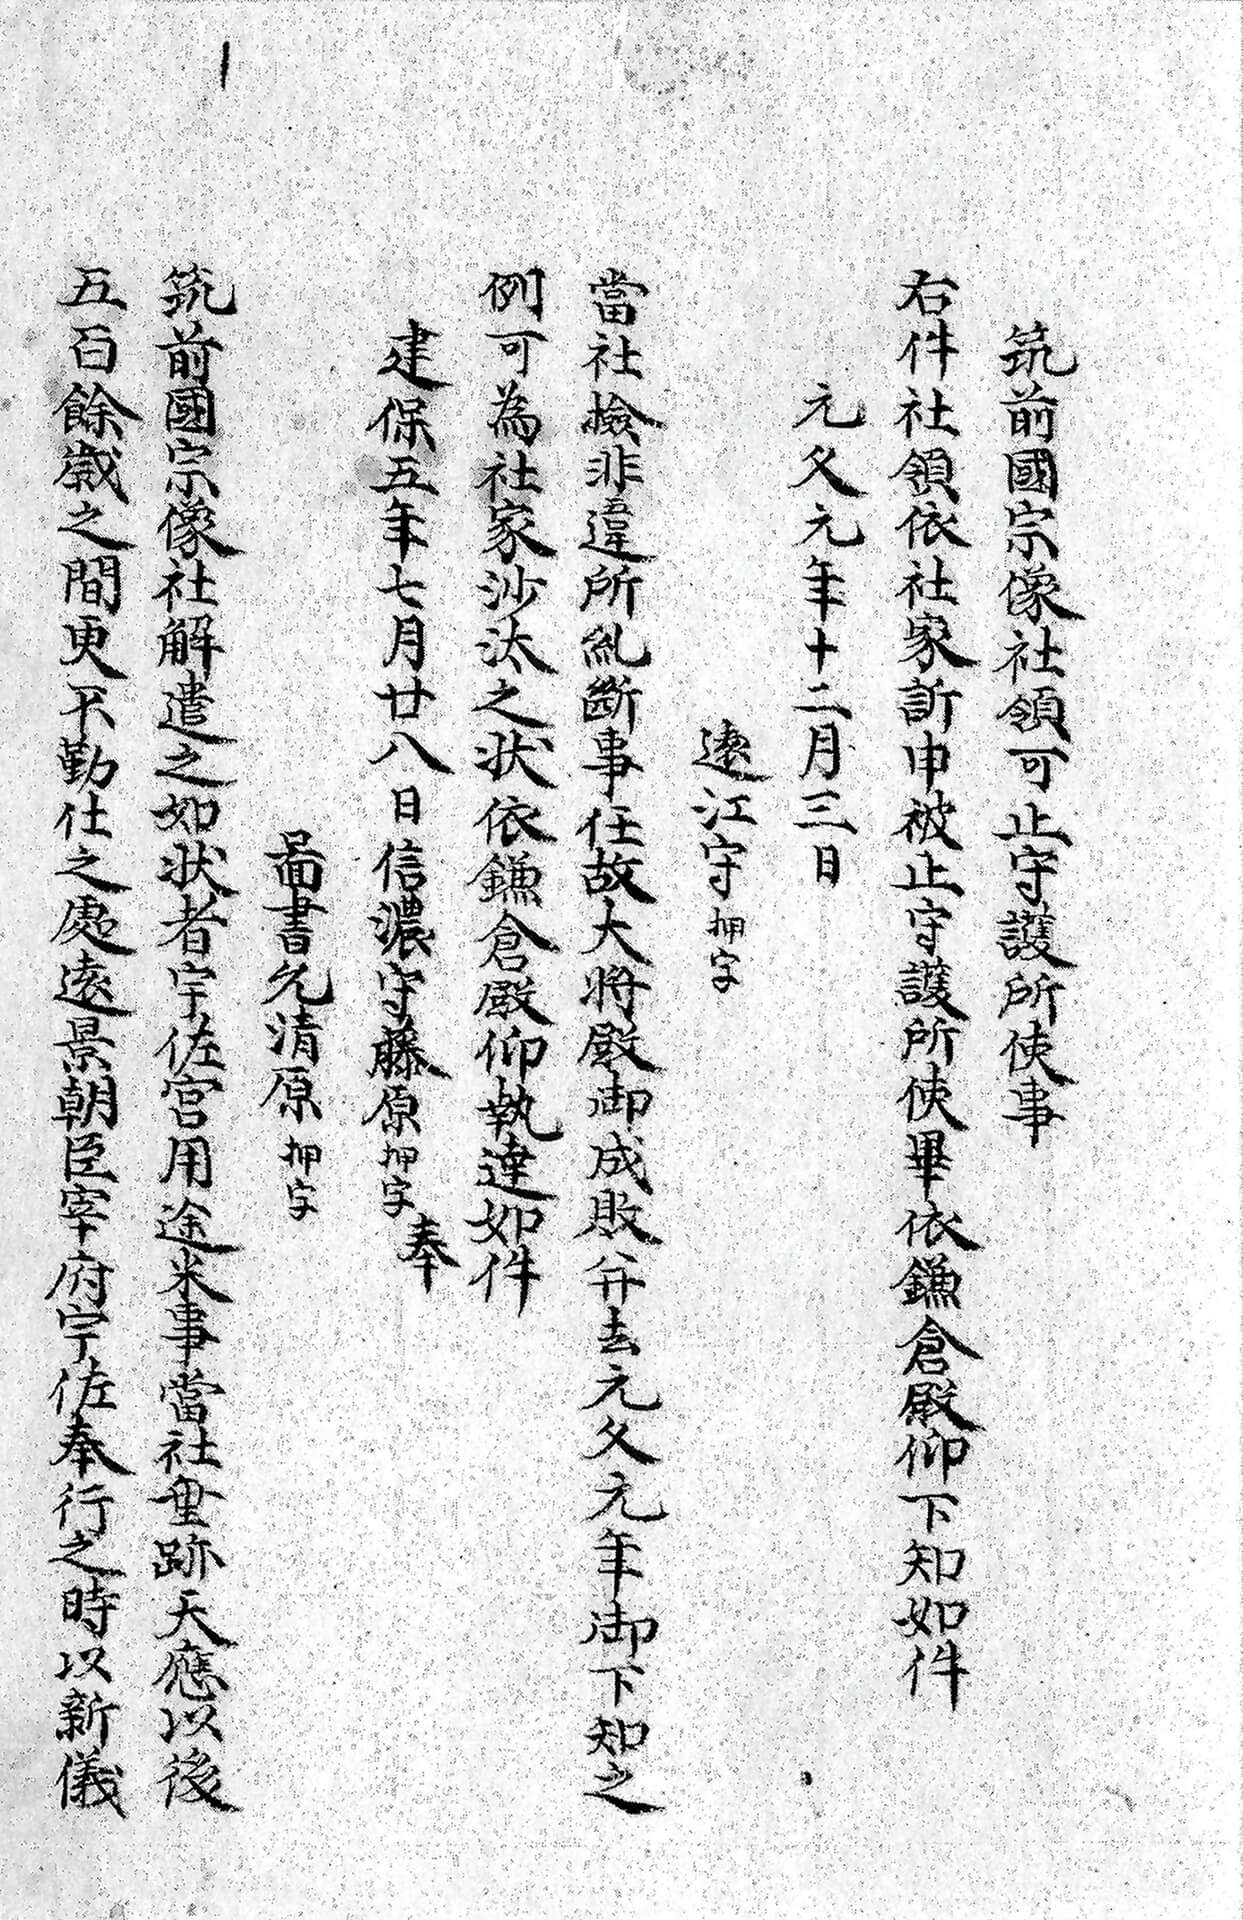 筑前國宗像社領可止守護所使事
右件社領依社家訴申被止守護所使畢依鎌倉殿仰下知如件
元久元年十二月三日
遠江守押字
當社檢非違所糺斷事任故大將殿御成敗并去元久元年御下知之
例可為社家沙汰之狀依鎌倉殿仰執達如件
建保五年七月廿八日信濃守藤原押字奉
圖書允清原押字
筑前國宗像社解遣之如狀者宇佐宮用途米事當社垂跡天應以後
五百餘歲之間更不勤仕之處遠景朝臣宰府宇佐奉行之時以新儀